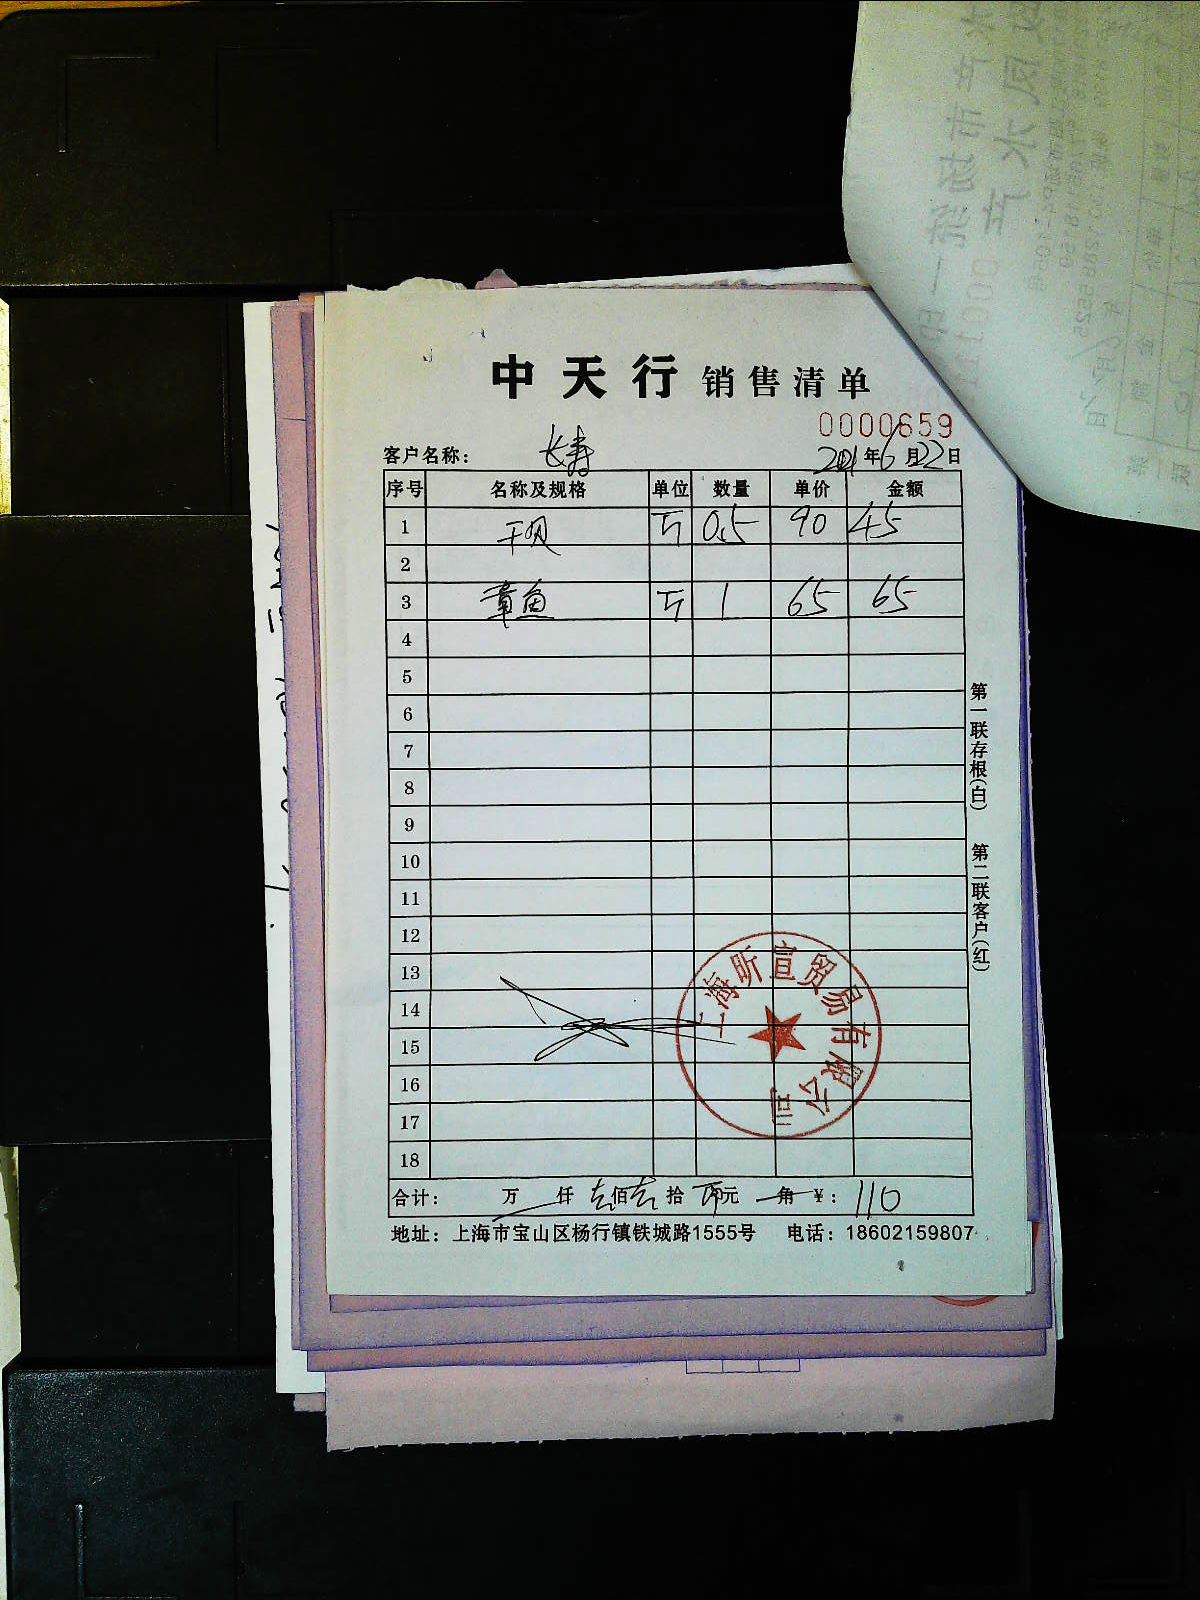 中天行 销售清单
0000659
客户名称： 长寿 2021年6月22日
序号 名称及规格 单位 数量 单价 金额
1 干贝 斤 0.5 90 45
2
3 章鱼 斤 1 65 65
4
5
6
7
8
9
10
11
12
13
14
15
16
17
18
上海昕宣贸易有限公司
合计： 万 仟 壹佰壹拾 元 角 ￥：110
地址：上海市宝山区杨行镇铁城路1555号 电话：18602159807
第一联存根(白) 第二联客户(红)